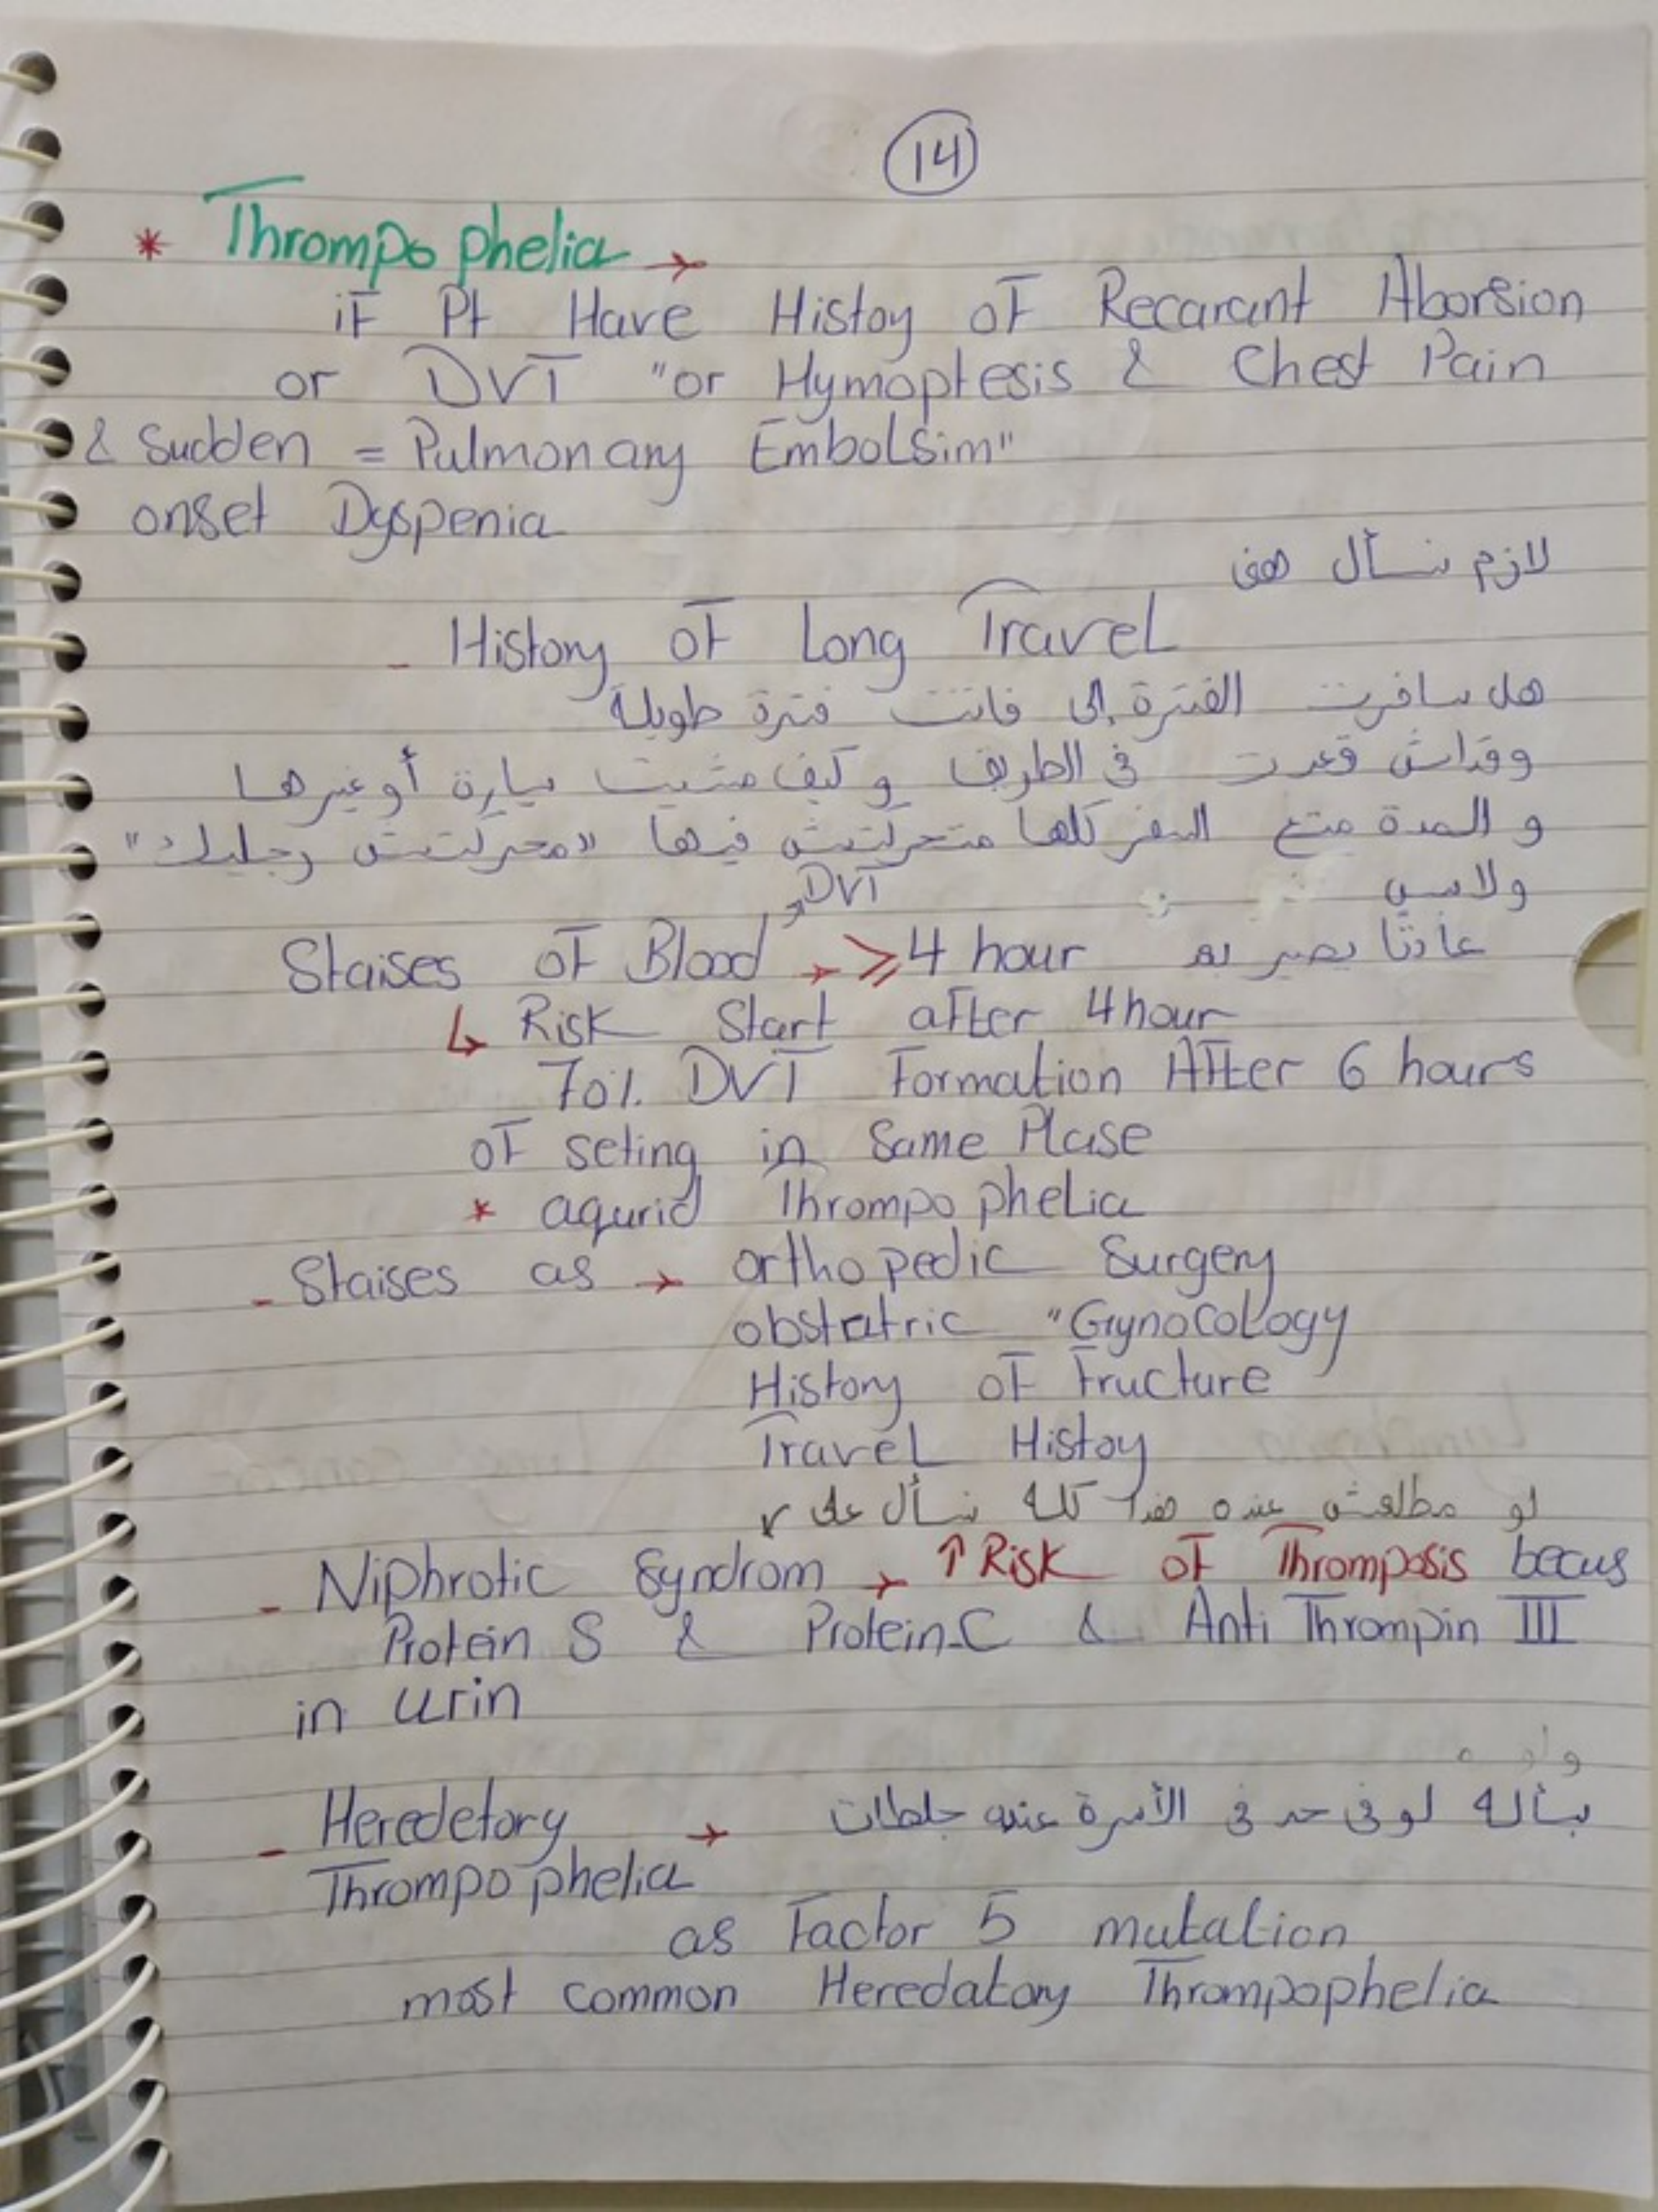 14
* Thrompo phelia →
if Pt Have Histoy of Recarant Aborsion
or DVT "or Hymoptesis & Chest Pain
& Sudden = Pulmonary Embolsim"
onset Dyspenia
لازم نسأل هني
- History of Long Travel
هل سافرت الفترة إلى فاتت فترة طويلة
وقداش قعدت في الطريق و كيف مشيت سيارة أو غيرها
و المدة متع السفر كلها متحركتش فيها "محركتش رجليك"
DVT
Staises of Blood → ≥ 4 hour عادتا يصير له
↳ Risk Start after 4 hour
70% DVT Formation After 6 hours
of seting in Same Plase
* aqurid Thrompo phelia
- Staises as → orthopedic Surgery
obstatric "Gynocology
History of Fructure
Travel Histoy
لو مطلعش عنده هذا كله نسأل على ↙
- Niphrotic Syndrom → ↑ Risk of Thromposis becus
Protein S & Protein-C & Anti Thrompin III
in urin
- Heredetory → بسأله لو في حد في الأسرة عنده جلطات
Thrompo phelia
as Factor 5 mutation
most common Heredatory Thrompophelia